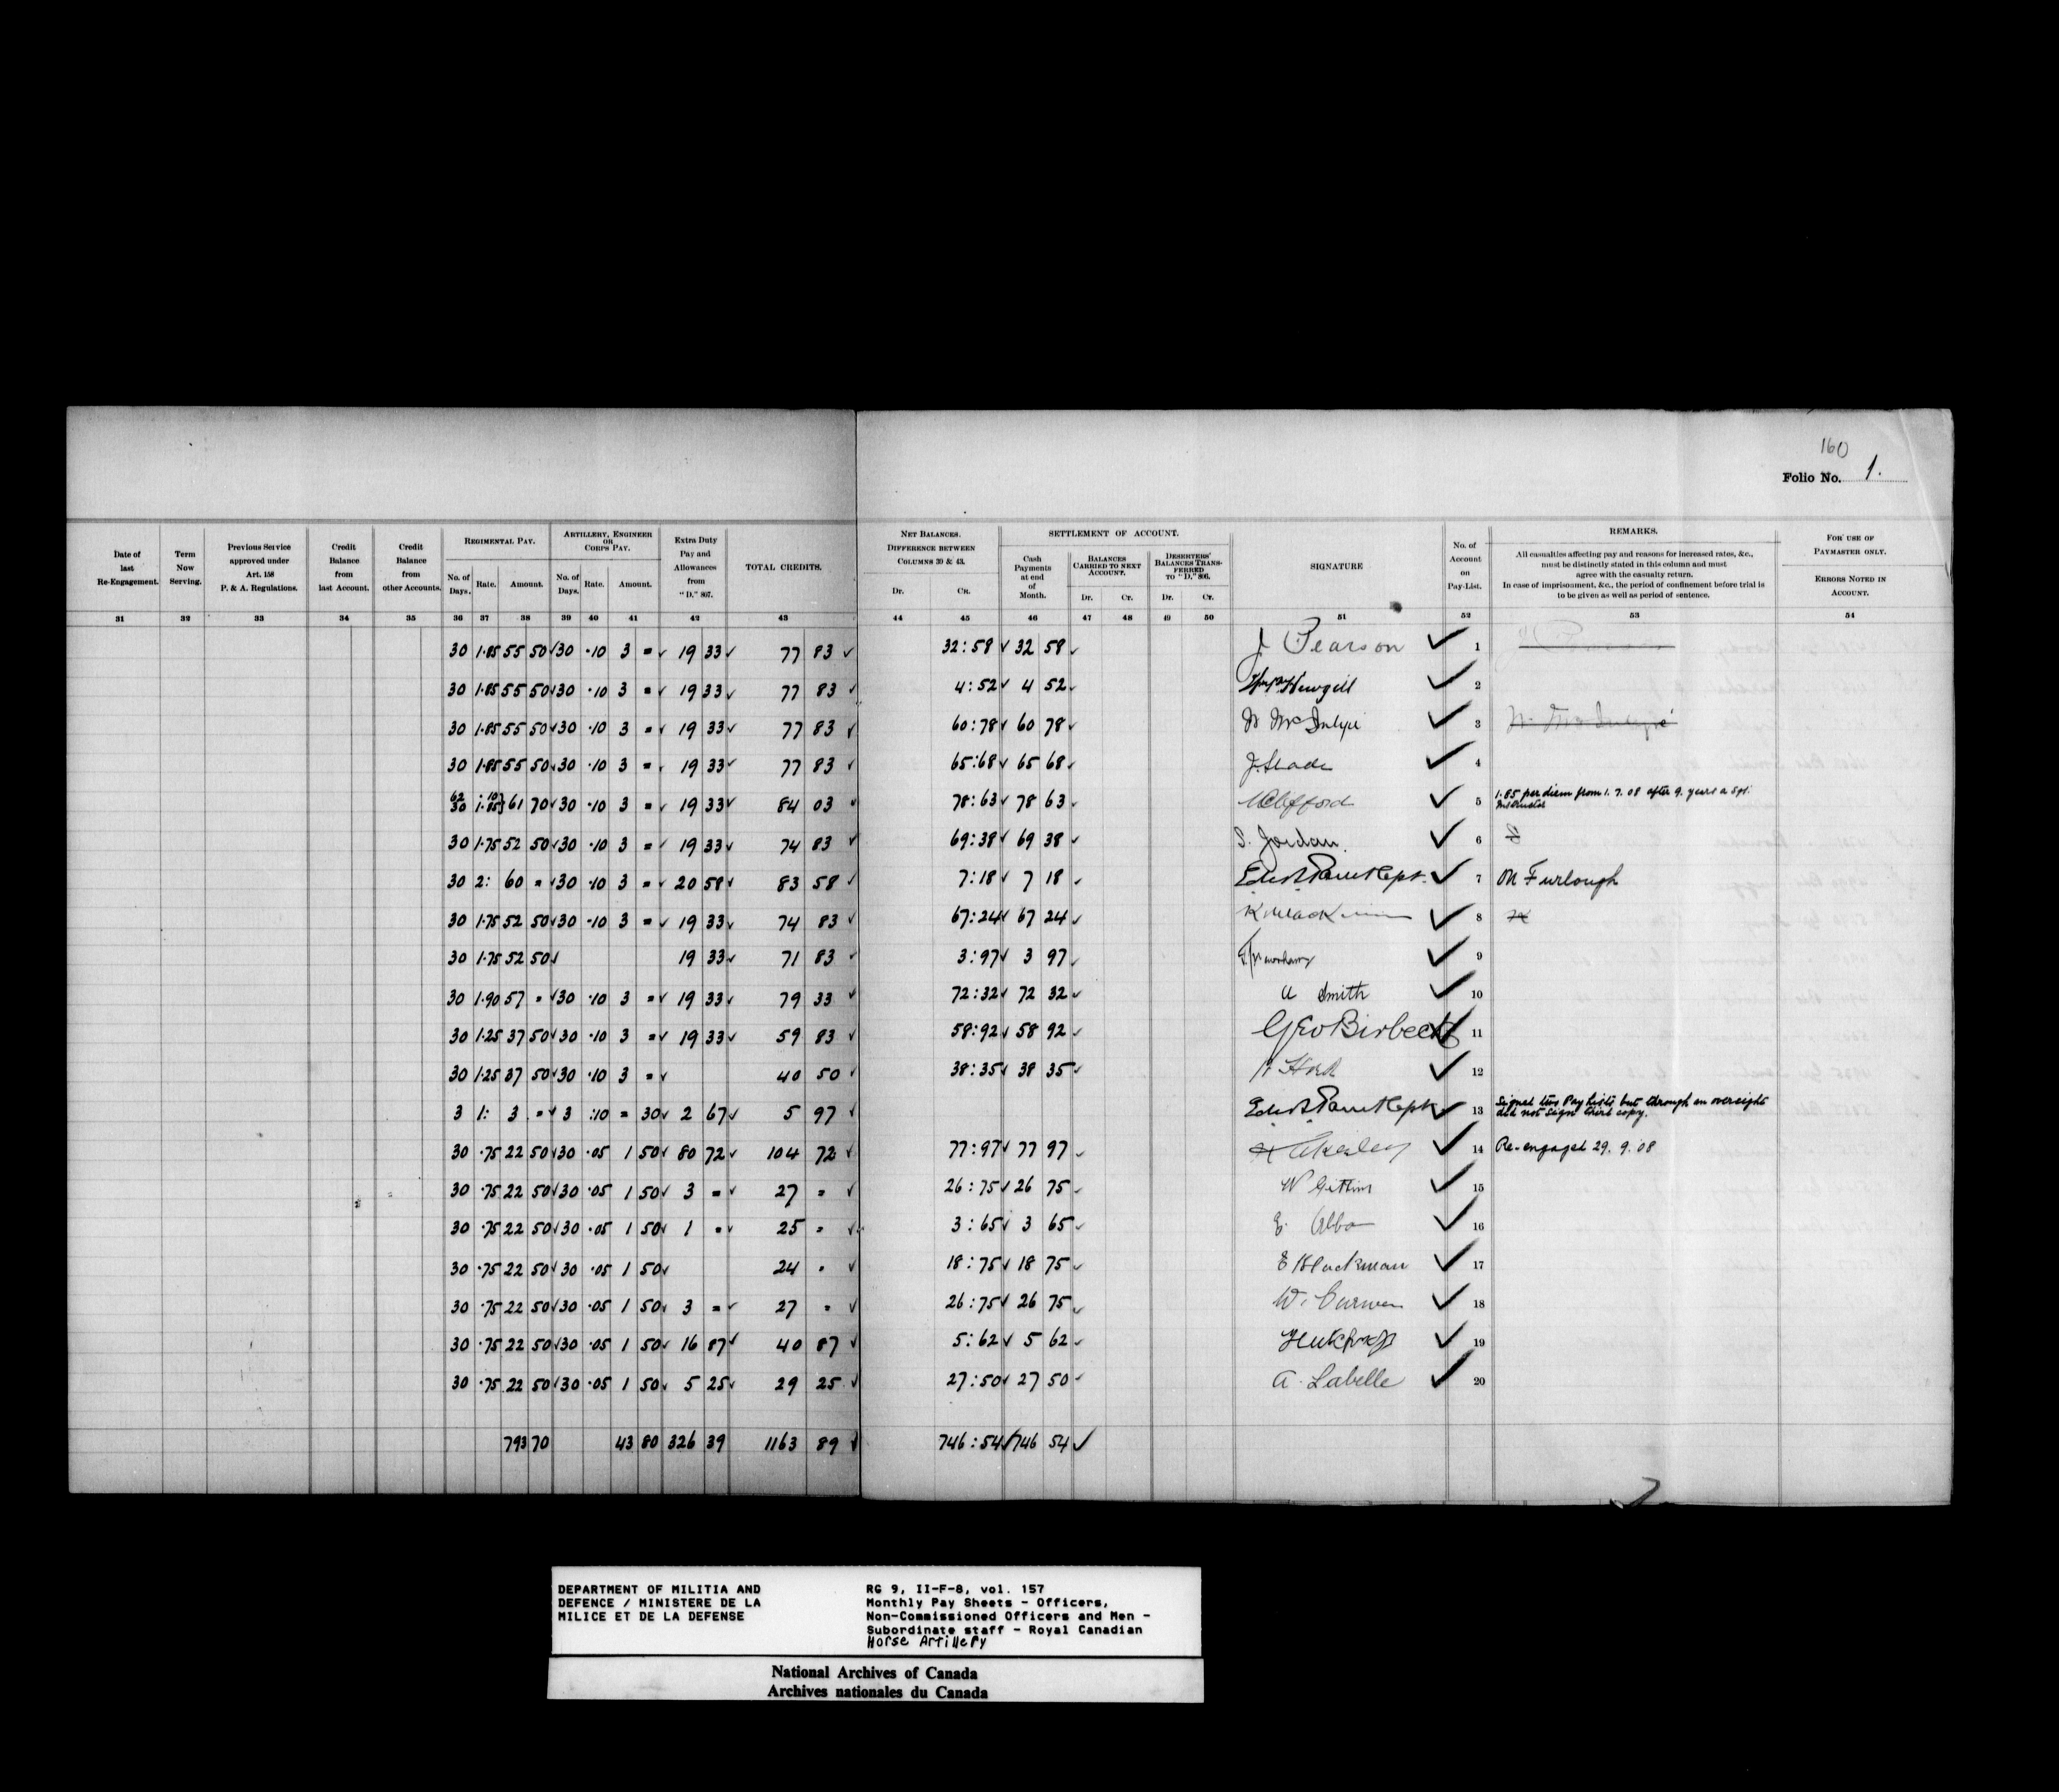 160
Folio No. 1.
Date of last Re-Engagement.
Term Now Serving.
Previous Service approved under Art. 158 P. & A. Regulations.
Credit Balance from last Account.
Credit Balance from other Accounts.
REGIMENTAL PAY.
No. of Days. Rate. Amount.
ARTILLERY, ENGINEER OR CORPS PAY.
No. of Days. Rate. Amount.
Extra Duty Pay and Allowances from "D." 807.
TOTAL CREDITS.
NET BALANCES. DIFFERENCE BETWEEN COLUMNS 30 & 43.
Dr. Cr.
SETTLEMENT OF ACCOUNT.
Cash Payments at end of Month.
BALANCES CARRIED TO NEXT ACCOUNT.
Dr. Cr.
DESERTERS' BALANCES TRANSFERRED TO "D." 806.
Dr. Cr.
SIGNATURE
No. of Account on Pay-List.
REMARKS.
All casualties affecting pay and reasons for increased rates, &c.,
must be distinctly stated in this column and must
agree with the casualty return.
In case of imprisonment, &c., the period of confinement before trial is
to be given as well as period of sentence.
FOR USE OF PAYMASTER ONLY.
ERRORS NOTED IN ACCOUNT.
31 32 33 34 35 36 37 38 39 40 41 42 43 44 45 46 47 48 49 50 51 52 53 54
30 1.85 55 50 ✓ 30 .10 3 = ✓ 19 33 ✓ 77 83 ✓ 32:58 ✓ 32 58 ✓ J Pearson ✓ 1
30 1.85 55 50 ✓ 30 .10 3 = ✓ 19 33 ✓ 77 83 ✓ 4:52 ✓ 4 52 ✓ Hewgill ✓ 2
30 1.85 55 50 ✓ 30 .10 3 = ✓ 19 33 ✓ 77 83 ✓ 60:78 ✓ 60 78 ✓ ✓ 3
30 1.85 55 50 ✓ 30 .10 3 = ✓ 19 33 ✓ 77 83 ✓ 65:68 ✓ 65 68 ✓ J. Slade ✓ 4
62 30 .10 1.85} 61 70 ✓ 30 .10 3 = ✓ 19 33 ✓ 84 03 ✓ 78:63 ✓ 78 63 ✓ Clifford ✓ 5 1.85 per diem from 1. 7. 08 after 9. years a Spl. Instructor
30 1.75 52 50 ✓ 30 .10 3 = ✓ 19 33 ✓ 74 83 ✓ 69:38 ✓ 69 38 ✓ S. Jordan. ✓ 6
30 2: 60 = ✓ 30 .10 3 = ✓ 20 58 ✓ 83 58 ✓ 7:18 ✓ 7 18 ✓ Capt. ✓ 7 On Furlough
30 1.75 52 50 ✓ 30 .10 3 = ✓ 19 33 ✓ 74 83 ✓ 67:24 ✓ 67 24 ✓ ✓ 8
30 1.75 52 50 ✓ 19 33 ✓ 71 83 ✓ 3:97 ✓ 3 97 ✓ ✓ 9
30 1.90 57 = ✓ 30 .10 3 = ✓ 19 33 ✓ 79 33 ✓ 72:32 ✓ 72 32 ✓ Smith ✓ 10
30 1.25 37 50 ✓ 30 .10 3 = ✓ 19 33 ✓ 59 83 ✓ 58:92 ✓ 58 92 ✓ Geo Birbeck ✓ 11
30 1.25 37 50 ✓ 30 .10 3 = ✓ 40 50 ✓ 38:35 ✓ 38 35 ✓ ✓ 12
3 1: 3 = ✓ 3 :10 = 30 ✓ 2 67 ✓ 5 97 ✓ Capt ✓ 13 Signed two Pay lists but through an oversight did not sign third copy.
30 .75 22 50 ✓ 30 .05 1 50 ✓ 80 72 ✓ 104 72 ✓ 77:97 ✓ 77 97 ✓ ✓ 14 Re-engaged 29. 9. 08
30 .75 22 50 ✓ 30 .05 1 50 ✓ 3 = ✓ 27 = ✓ 26:75 ✓ 26 75 ✓ W Gittins ✓ 15
30 .75 22 50 ✓ 30 .05 1 50 ✓ 1 = ✓ 25 = ✓ 3:65 ✓ 3 65 ✓ ✓ 16
30 .75 22 50 ✓ 30 .05 1 50 ✓ 24 = ✓ 18:75 ✓ 18 75 ✓ E Blackman ✓ 17
30 .75 22 50 ✓ 30 .05 1 50 ✓ 3 = ✓ 27 = ✓ 26:75 ✓ 26 75 ✓ W. Curwen ✓ 18
30 .75 22 50 ✓ 30 .05 1 50 ✓ 16 87 ✓ 40 87 ✓ 5:62 ✓ 5 62 ✓ ✓ 19
30 .75 22 50 ✓ 30 .05 1 50 ✓ 5 25 ✓ 29 25 ✓ 27:50 ✓ 27 50 ✓ A. Labelle ✓ 20
793 70 43 80 326 39 1163 89 ✓ 746:54 ✓ 746 54 ✓
DEPARTMENT OF MILITIA AND
DEFENCE / MINISTERE DE LA
MILICE ET DE LA DEFENSE
RG 9, II-F-8, vol. 157
Monthly Pay Sheets - Officers,
Non-Commissioned Officers and Men -
Subordinate staff - Royal Canadian
Horse Artillery
National Archives of Canada
Archives nationales du Canada